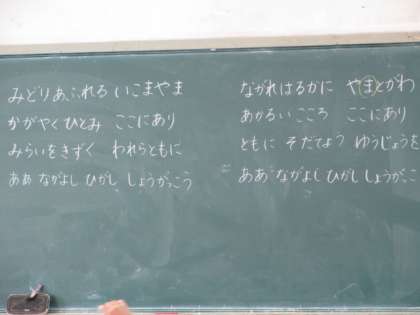 みどりあふれる いこまやま
かがやくひとみ ここにあり
みらいをきずく われらともに
ああ ながよし ひがし しょうがっこう
ながれはるかに やまとがわ
あかるい こころ ここにあり
ともに そだてよう ゆうじょうを
ああ ながよし ひがし しょうがっこ